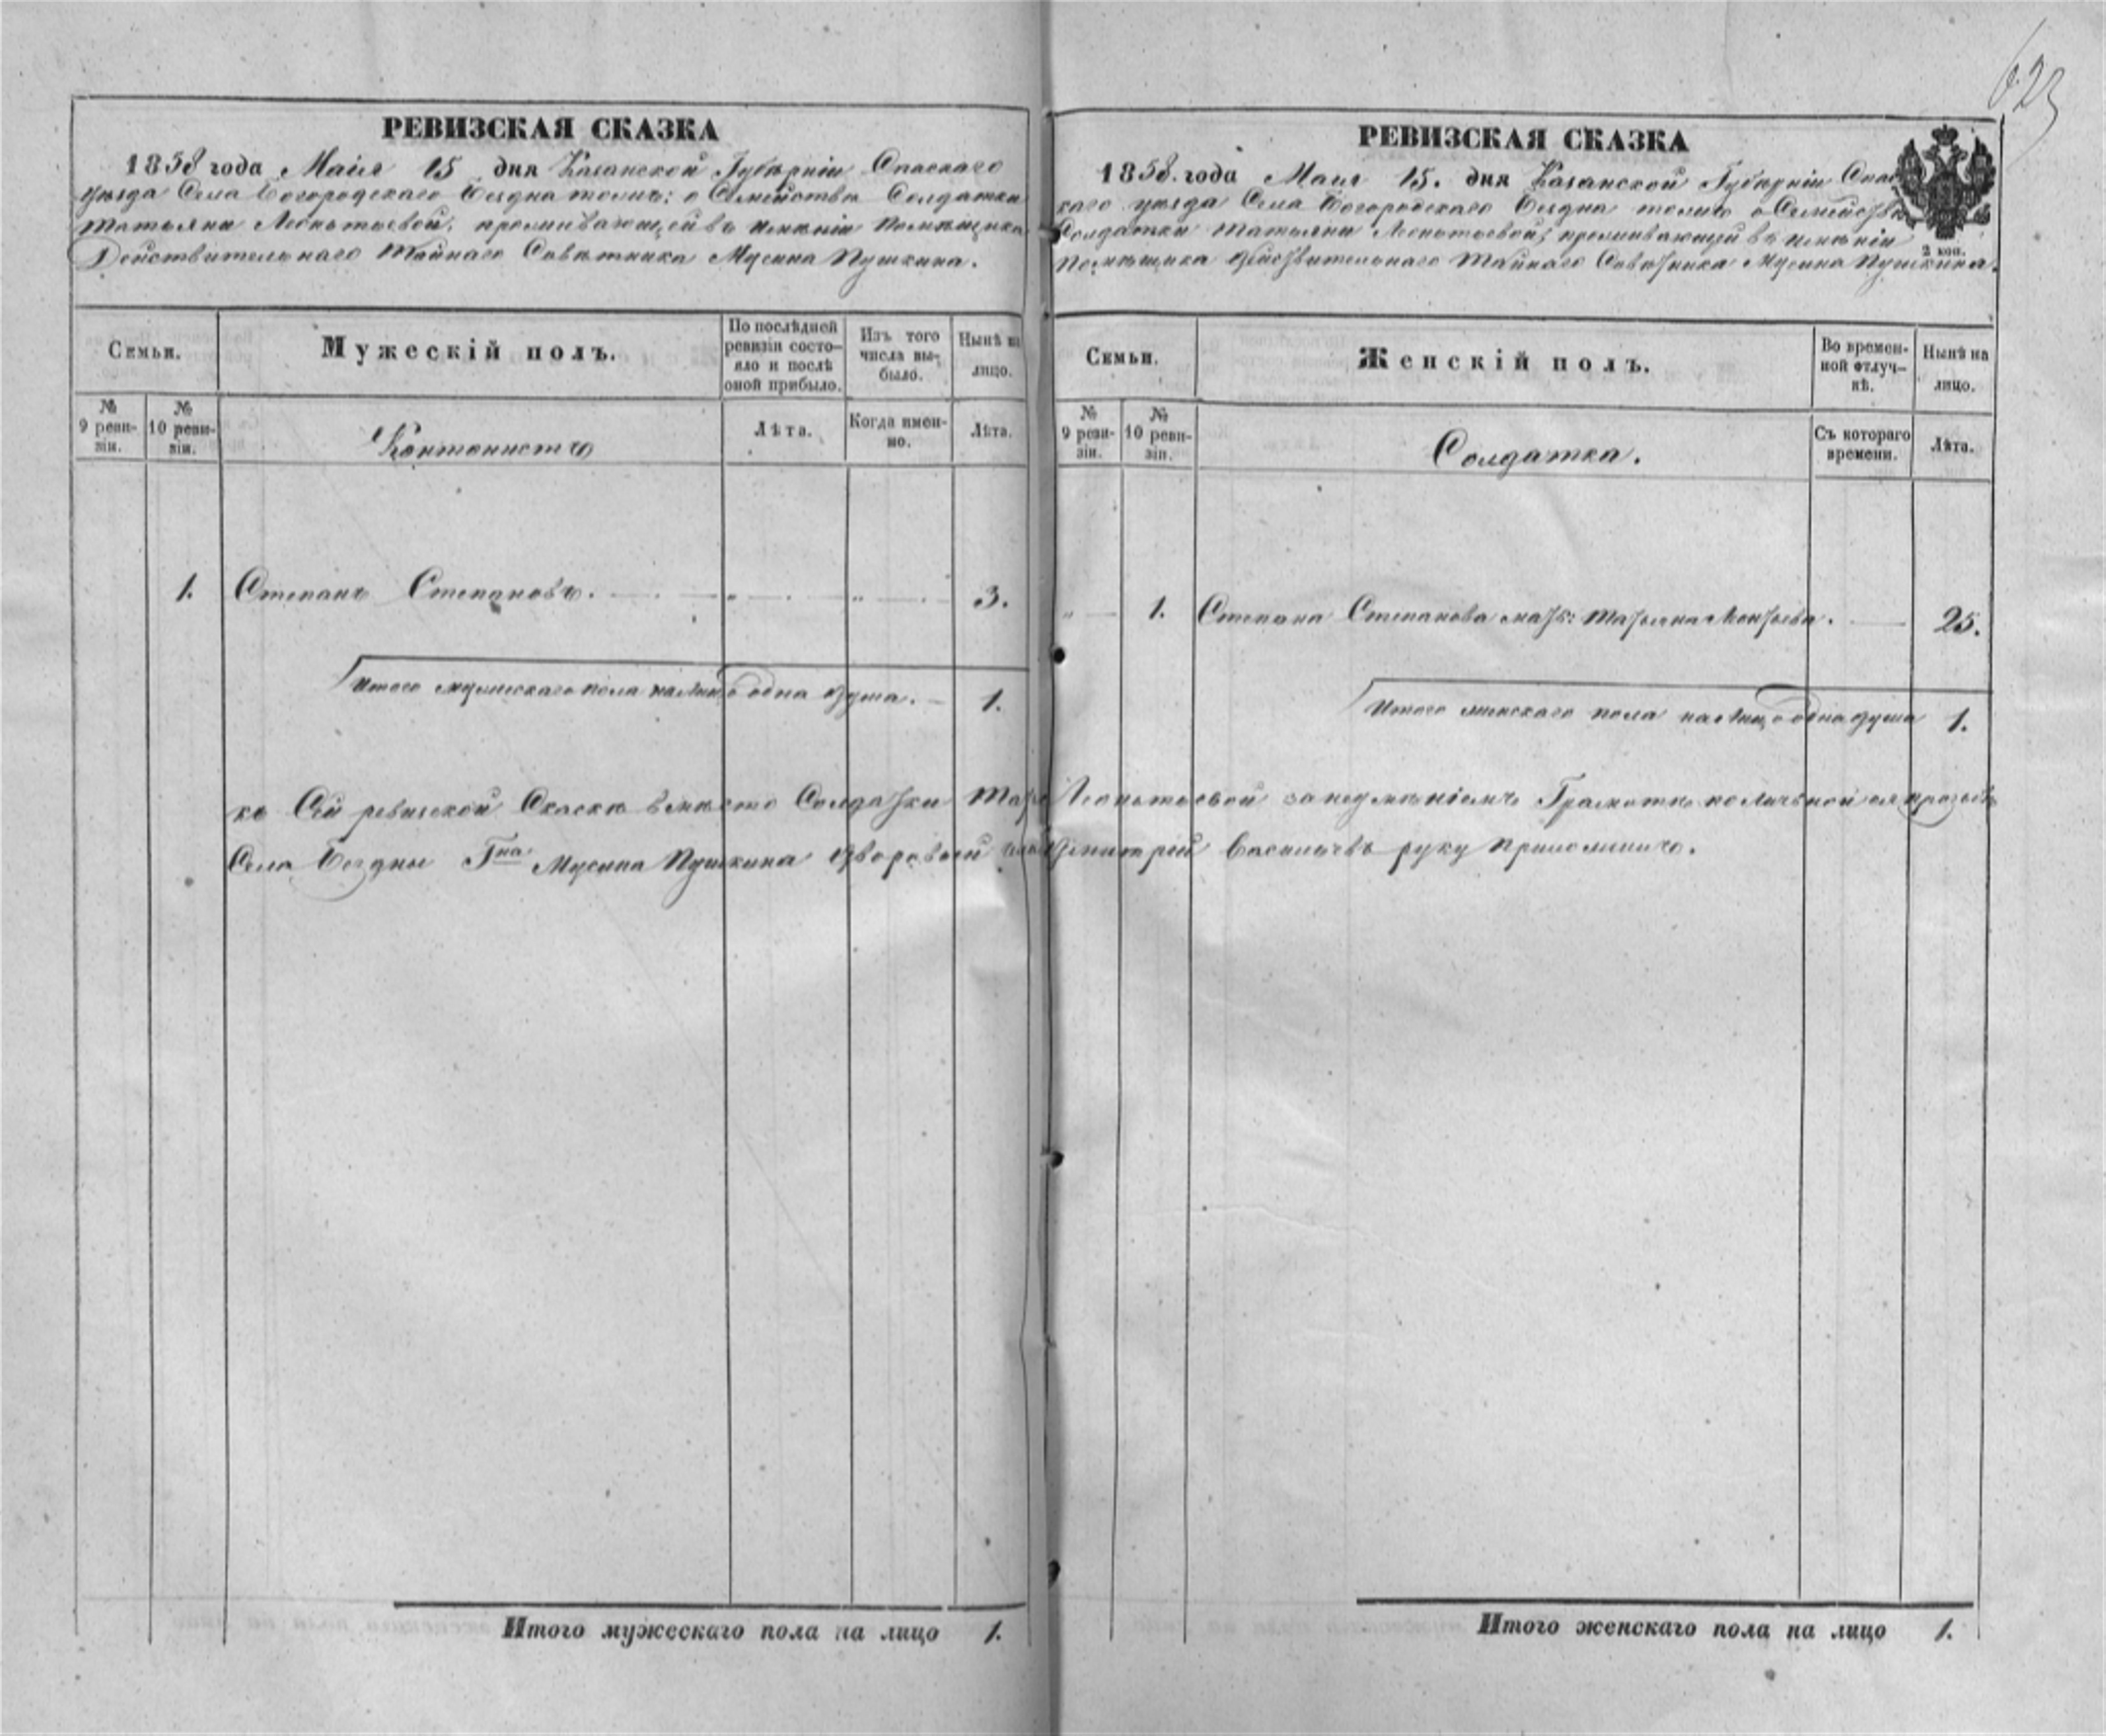 623
РЕВИЗСКАЯ СКАЗКА
1858 года Маія 15 дня Казанской Губерніи Спаскаго
уѣзда Села Богородскаго Бездна тожъ: о Семействѣ Солдатки
Татьяны Леонтьевой, проживающей въ имѣніи помѣщика
Действительнаго Тайнаго Совѣтника Мусина Пушкина.
Семьи.
Мужескій полъ.
По послѣдней ревизіи состо-яло и послѣ оной прибыло.
Изъ того числа вы-было.
Нынѣ на лицо.
№ 9 реви-зіи.
№ 10 реви-зіи.
Кантонистъ
Лѣта.
Когда имен-но.
Лѣта.
1. Степанъ Степановъ. „ „ 3.
Итого мужескаго пола на лицо одна душа. 1.
РЕВИЗСКАЯ СКАЗКА
1858. года Маія 15. дня Казанской Губерніи Спас
каго уѣзда Села Богородскаго Бездна тожъ о Семействѣ
Солдатки Татьяны Леонтьевой, проживающей въ имѣніи
помѣщика Действительнаго Тайнаго Совѣтника Мусина Пушкина.
2 коп.
Семьи.
Женскій полъ.
Во времен-ной отлуч-кѣ.
Нынѣ на лицо.
№ 9 реви-зіи.
№ 10 реви-зіи.
Солдатка.
Съ котораго времени.
Лѣта.
„ 1. Степана Степанова мать: Татьяна Леонтьева. 25.
Итого женскаго пола на лицо одна душа 1.
къ Сей ревиской Скаскѣ вмѣсто Солдатки Леонтьевой за неумѣніемъ Грамотѣ по личьной ея прозьбѣ
Села Бездны Гна Мусина Пушкина дворовый Дмитрій Васильевъ руку приложилъ.
Итого мужескаго пола на лицо 1.
Итого женскаго пола на лицо 1.